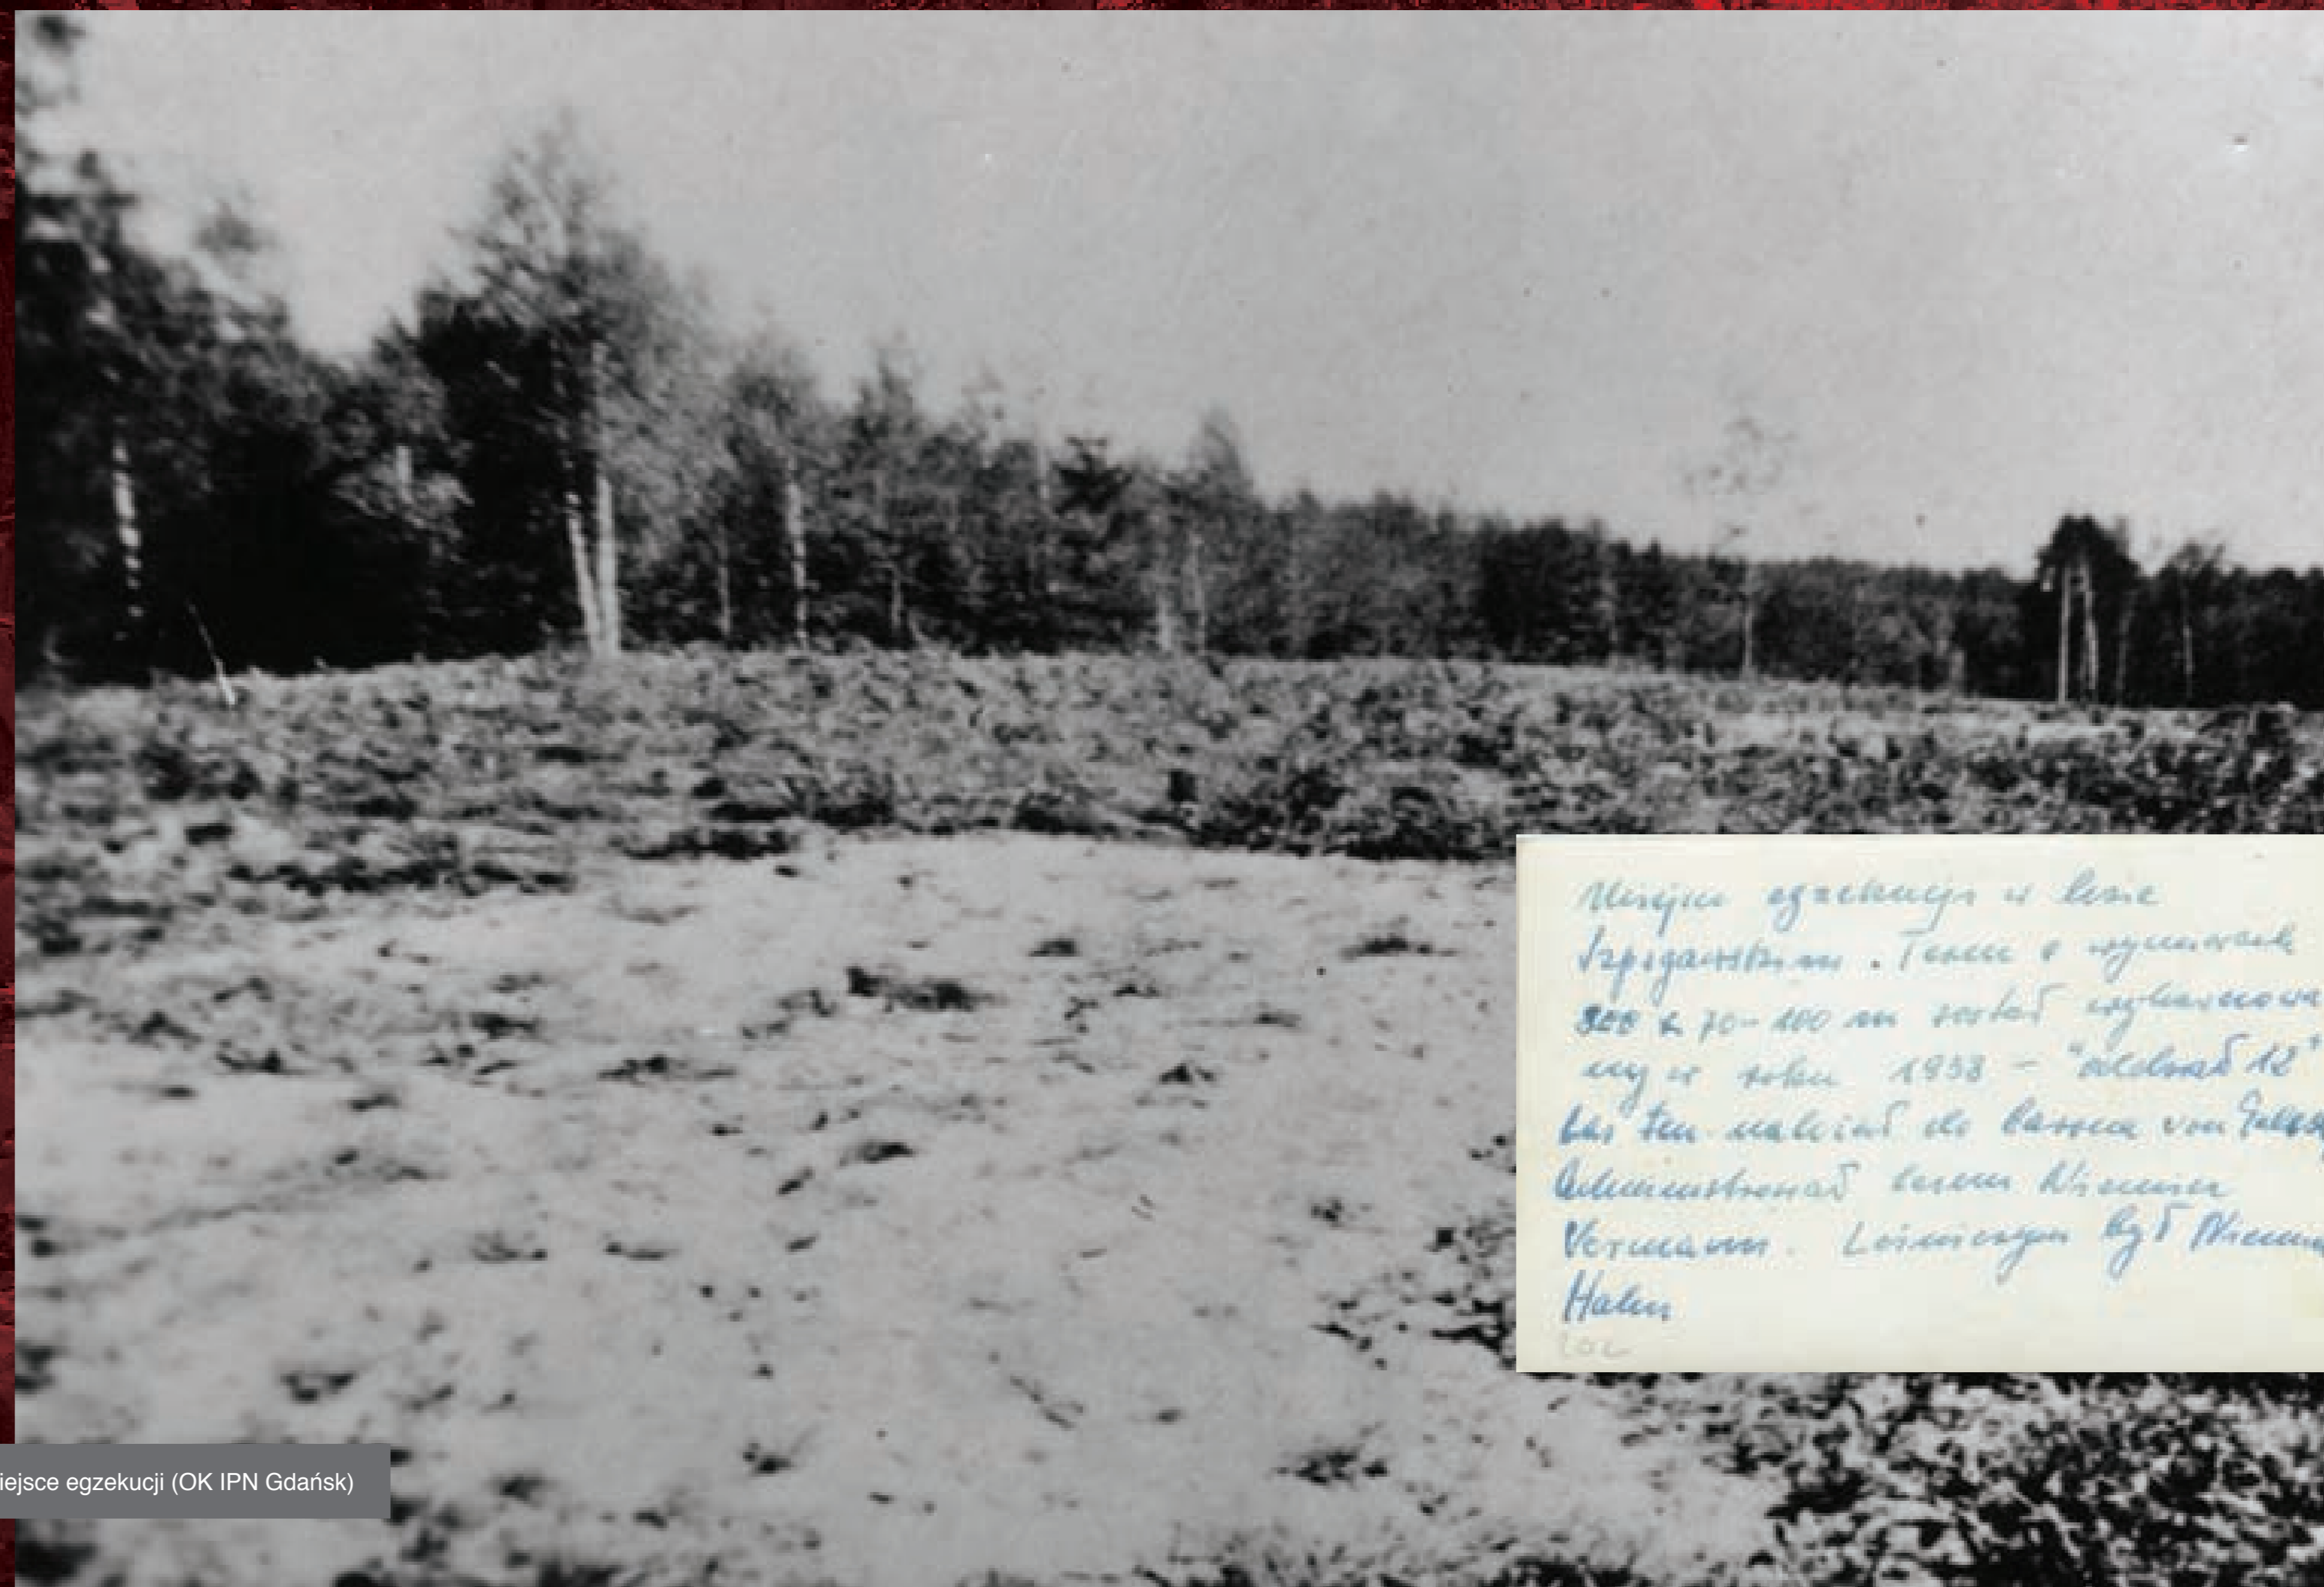 Miejsce egzekucji w lesie
Szpęgawskim. Teren o wymiarach
300 x 70-100 m został wykarczowa
ny w roku 1938 - "oddział 12"
Las ten należał do barona von
Administrował lasem Niemiec
Vermann. Leśniczym był
Hahn
iejsce egzekucji (OK IPN Gdańsk)